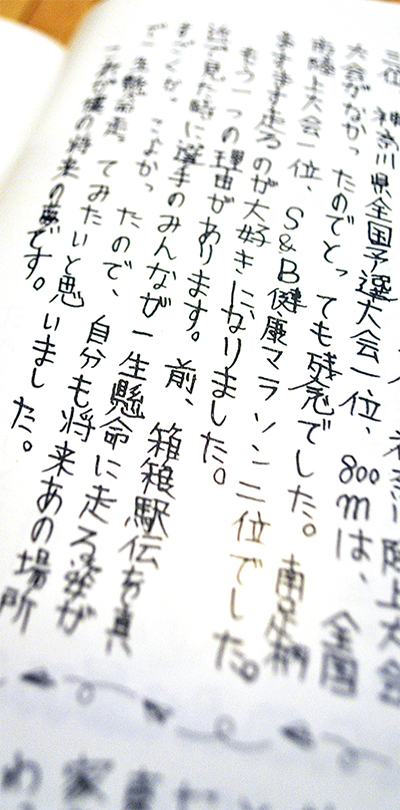 川陸上大会
三位、神奈川県全国予選大会一位、800mは、全国
大会がなかったのでとっても残念でした。南足柄
市陸上大会一位、S&B健康マラソン二位でした。
ますます走るのが大好きになりました。
もう一つの理由があります。前、箱根駅伝を真
近で見た時に選手のみんなが一生懸命に走る姿が
すごくかっこよかったので、自分も将来あの場所
で一生懸命走ってみたいと思いました。
これが僕の将来の夢です。